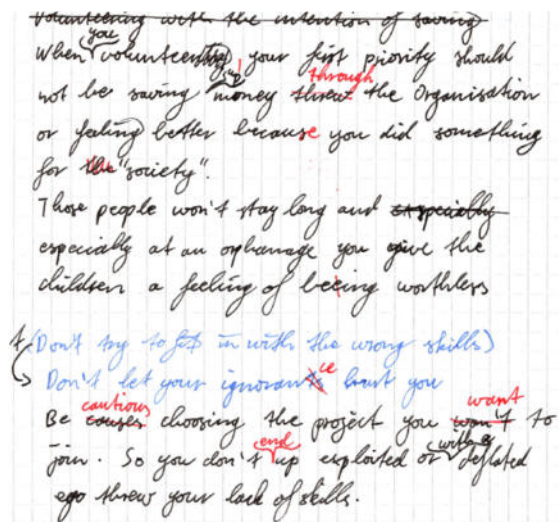 Volunteering with the intention of saving
When you volunteering, your first priority should
not be saving money threw through the Organisation
or feeling better because you did something
for the "society".
Those people won't stay long and especially
especially at an orphanage you give the
children a feeling of being worthless
(Don't try to fit in with the wrong skills)
Don't let your ignorance hurt you
Be causes cautious choosing the project you won't want to
join. So you don't end up exploited or with a deflated
ego threw your lack of skills.